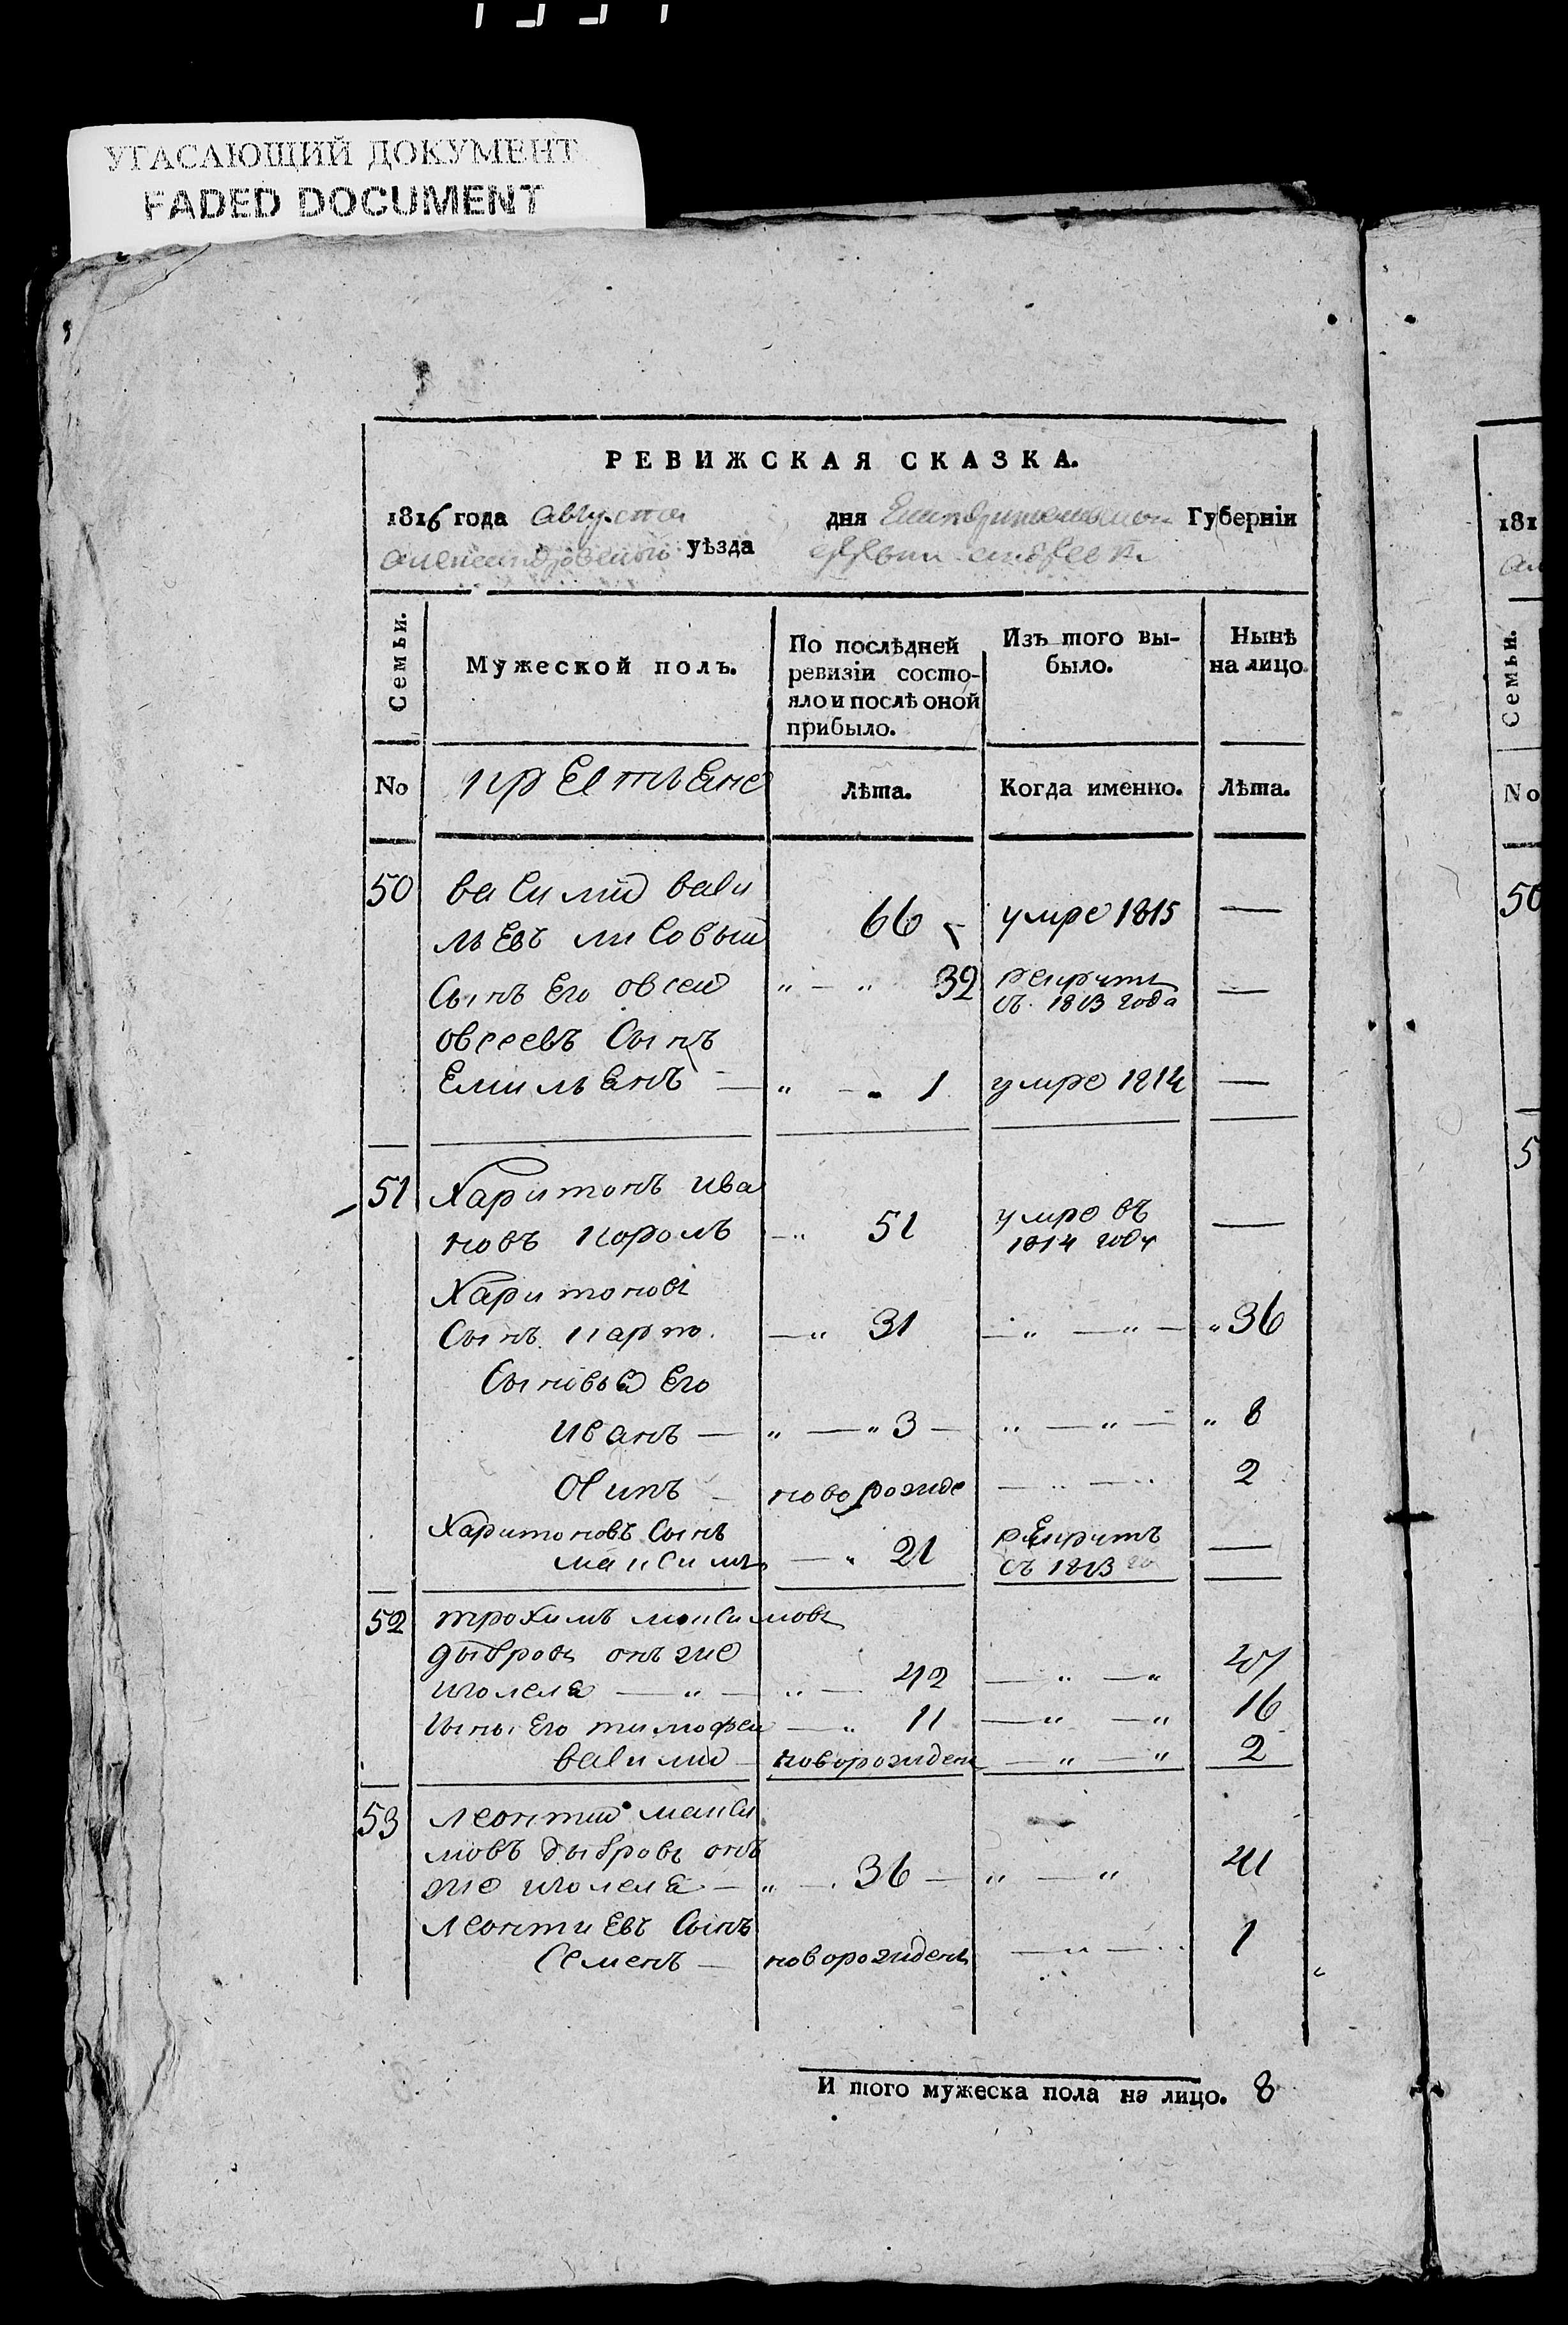 УГАСАЮЩИЙ ДОКУМЕНТ
FADED DOCUMENT
РЕВИЖСКАЯ СКАЗКА.
1816 года августа дня Губернiи
уѣзда
Семьи. Мужеской полъ. По послѣдней ревизiи состо-яло и послѣ оной прибыло. Изъ того вы-было. Нынѣ на лицо.
No крестьяне Лѣта. Когда именно. Лѣта.
50 василий васи
льевъ лисовый 66 умре 1815 —
сынъ Его овсей " — " 32 рекрутъ съ 1813 года —
овсеевъ сынъ
Емильянъ — " — " 1 умре 1814 —
51 Харитонъ ива
новъ король — " 51 умре въ 1814 году —
Харитоновъ
сынъ карпъ — " 31 — " — " — " 36
сыновья Его
иванъ — " — " 3 — " — " — " 8
осипъ — новорожде — " — " 2
Харитоновъ сынъ
максимъ — " 21 рекрутъ съ 1813 го —
52 трохимъ максимовъ
дибровъ онъ же
шолеля — " — " — 42 — " — " 47
сынъ Его тимофей — " 11 — " — " 16
василий — новорожденъ — " — " 2
53 леонтий макси
мовъ дибровъ онъ
же шолеля — " — 36 — " — " 41
леонтиевъ сынъ
Семенъ — новорожденъ — " — " 1
И того мужеска пола на лицо. 8
181
Семьи.
No
50
5